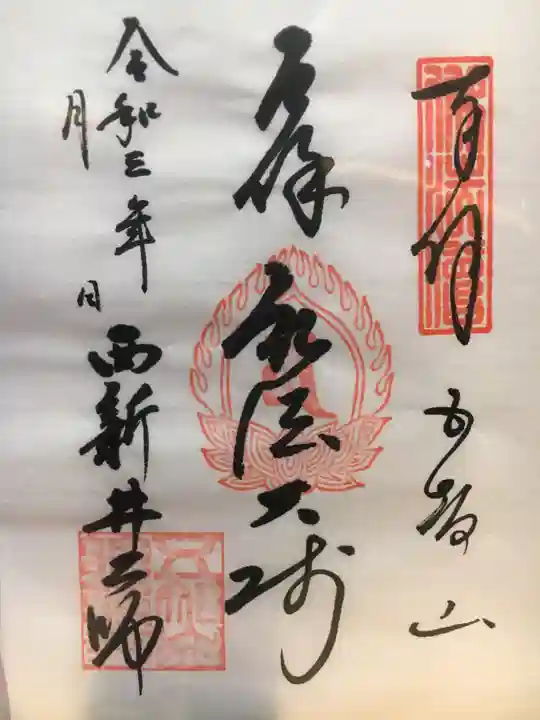 奉拝
五智山
厄除
弘法大師
令和三年
月 日
西新井大師